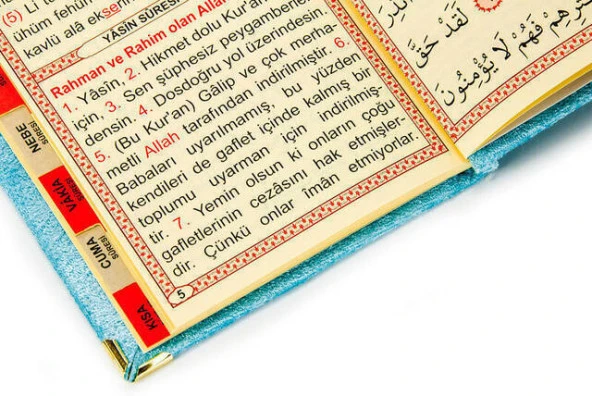 (5) Li te
ühüm fehül
kavlü alâ ekser
YÂSİN SURESİ
Rahman ve Rahim olan Allah
1. Yâsîn, 2. Hikmet dolu Kur'an
için, 3. Sen şüphesiz peygamberler
densin. 4. Dosdoğru yol üzerindesin.
5. (Bu Kur'an) Gâlip ve çok merha-
metli Allah tarafından indirilmiştir. 6.
Babaları uyarılmamış, bu yüzden
kendileri de gaflet içinde kalmış bir
toplumu uyarman için indirilmiş-
tir. 7. Yemin olsun ki onların çoğu
gafletlerinin cezâsını hak etmişler-
dir. Çünkü onlar îmân etmiyorlar.
5
NEBE
SÛRESİ
VAKIA
SÛRESİ
CUMA
SÛRESİ
KISA
لَقَدْ حَقَّ
فَهُمْ لَا يُؤْمِنُونَ